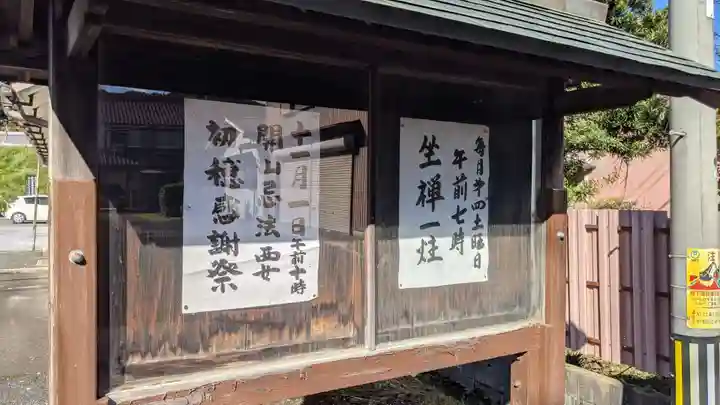 十一月一日午前十時
開山忌法要
初穂感謝祭
毎月第四土曜日
午前七時
坐禅一炷
注